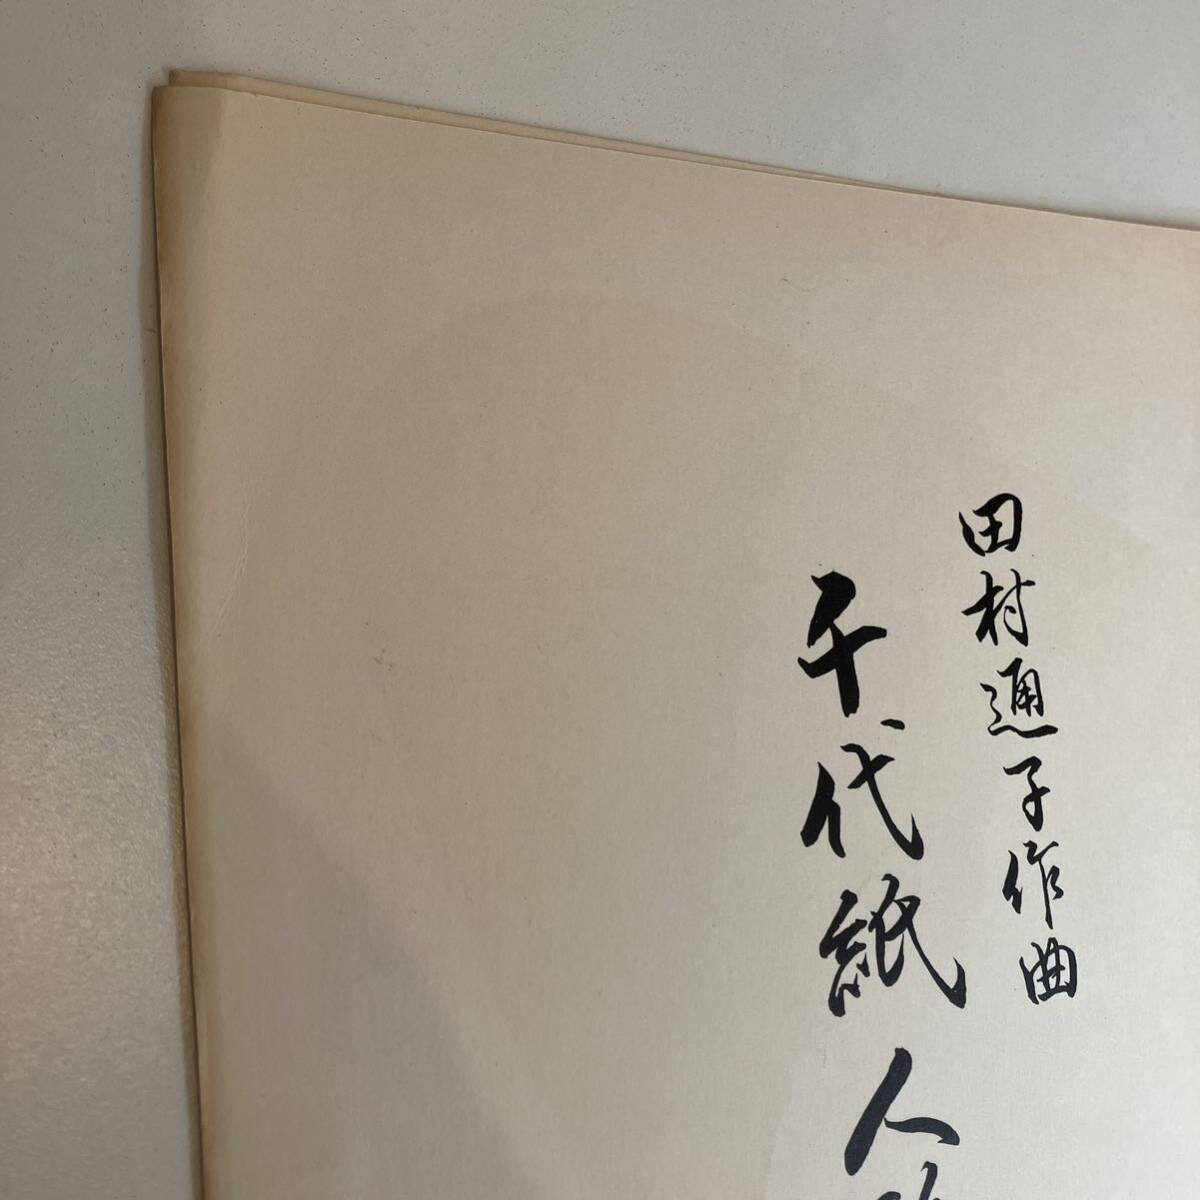 田村通子作曲
千代紙人